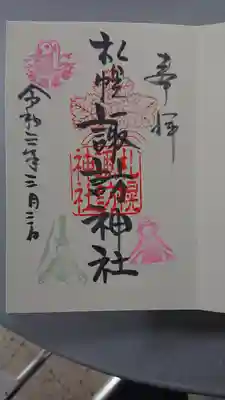 奉拝
札幌諏訪神社
札幌
諏訪
神社
令和二年三月三日